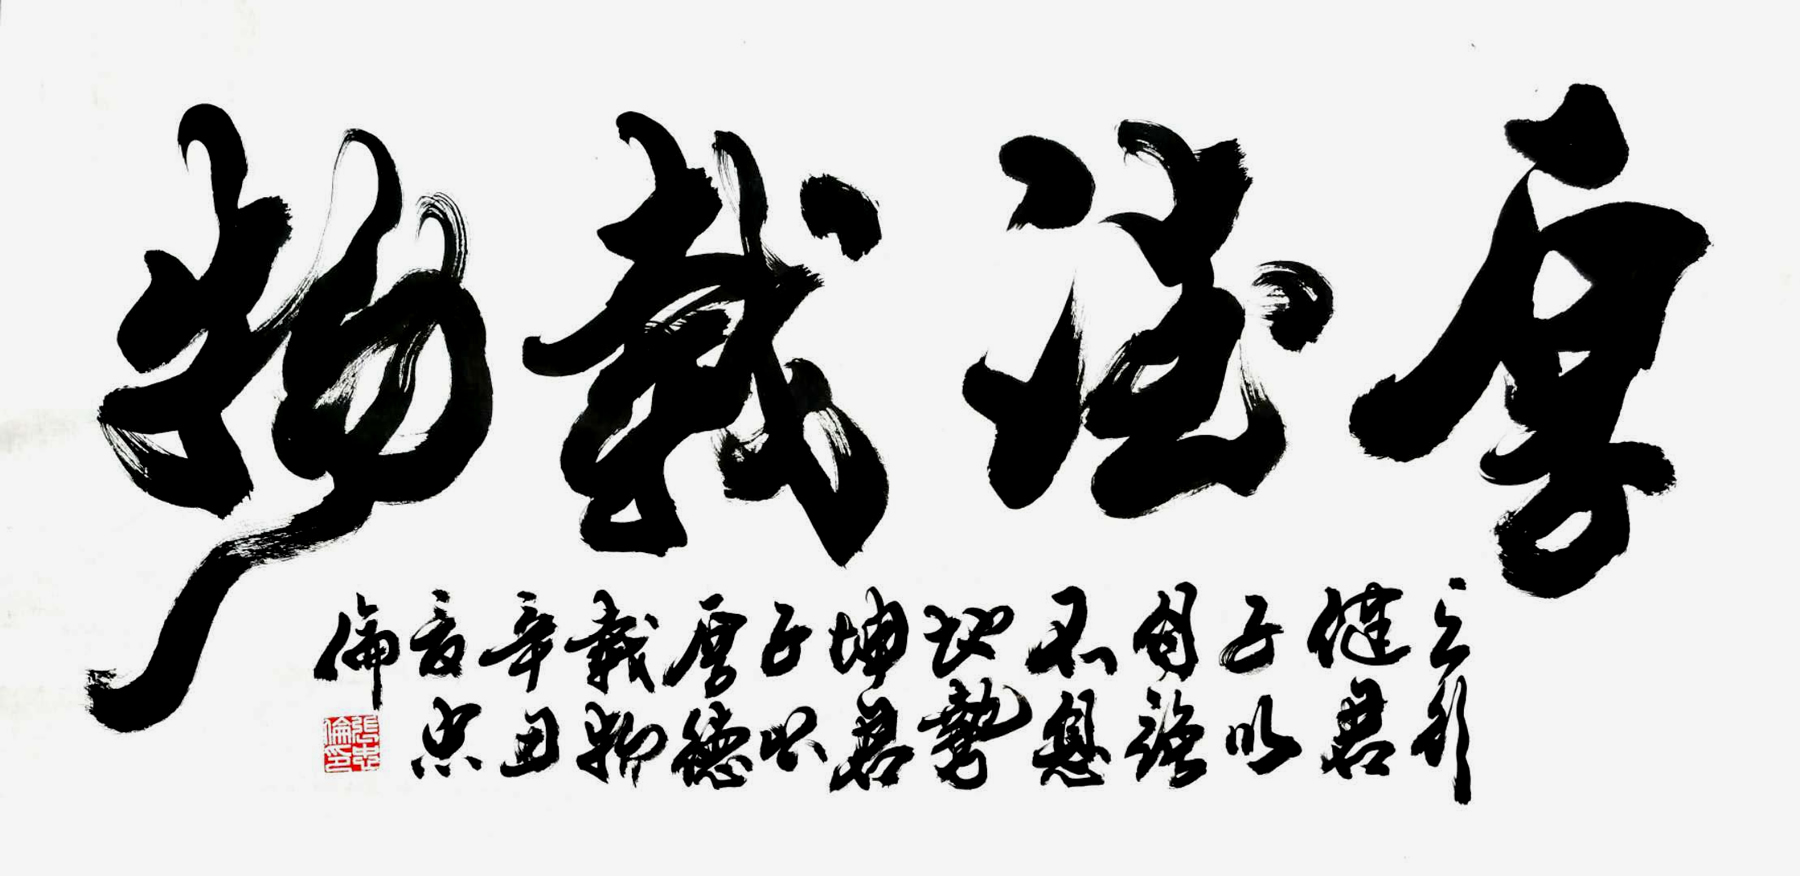 厚德載物
天行
健君
子以
自強
不息
地勢
坤君
子以
厚德
載物
辛丑
夏忠
倫
張忠倫印